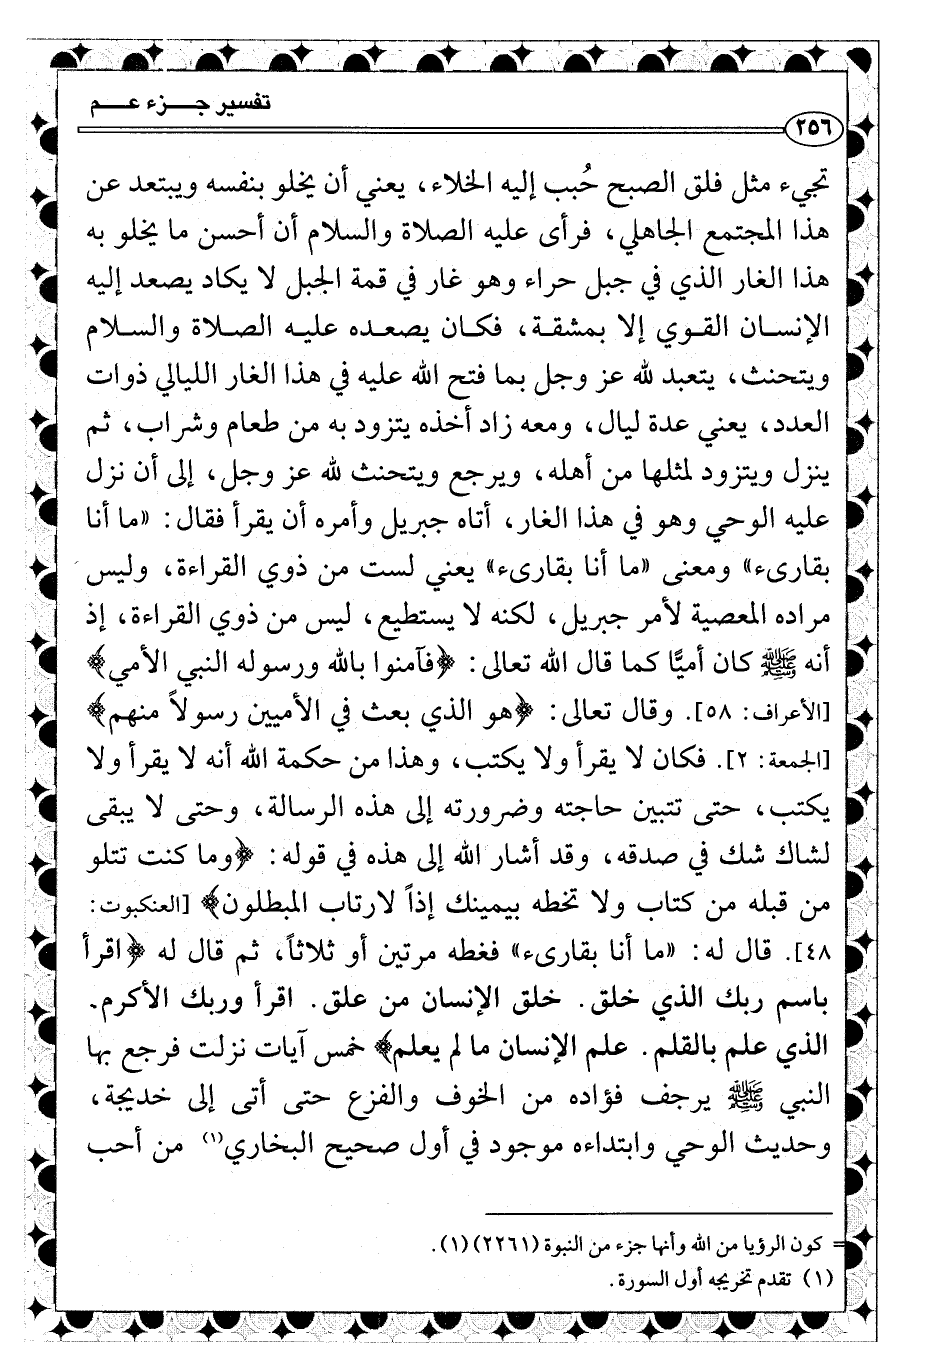 تفسير جـــزء عـــم
٢٥٦
تجيء مثل فلق الصبح حُبب إليه الخلاء، يعني أن يخلو بنفسه ويبتعد عن
هذا المجتمع الجاهلي، فرأى عليه الصلاة والسلام أن أحسن ما يخلو به
هذا الغار الذي في جبل حراء وهو غار في قمة الجبل لا يكاد يصعد إليه
الإنسان القوي إلا بمشقة، فكان يصعده عليه الصلاة والسلام
ويتحنث، يتعبد لله عز وجل بما فتح الله عليه في هذا الغار الليالي ذوات
العدد، يعني عدة ليال، ومعه زاد أخذه يتزود به من طعام وشراب، ثم
ينزل ويتزود لمثلها من أهله، ويرجع ويتحنث لله عز وجل، إلى أن نزل
عليه الوحي وهو في هذا الغار، أتاه جبريل وأمره أن يقرأ فقال: «ما أنا
بقارىء» ومعنى «ما أنا بقارىء» يعني لست من ذوي القراءة، وليس
مراده المعصية لأمر جبريل، لكنه لا يستطيع، ليس من ذوي القراءة، إذ
أنه ﷺ كان أميًّا كما قال الله تعالى: ﴿فآمنوا بالله ورسوله النبي الأمي﴾
[الأعراف: ٥٨]. وقال تعالى: ﴿هو الذي بعث في الأميين رسولاً منهم﴾
[الجمعة: ٢]. فكان لا يقرأ ولا يكتب، وهذا من حكمة الله أنه لا يقرأ ولا
يكتب، حتى تتبين حاجته وضرورته إلى هذه الرسالة، وحتى لا يبقى
لشاك شك في صدقه، وقد أشار الله إلى هذه في قوله: ﴿وما كنت تتلو
من قبله من كتاب ولا تخطه بيمينك إذاً لارتاب المبطلون﴾ [العنكبوت:
٤٨]. قال له: «ما أنا بقارىء» فغطه مرتين أو ثلاثاً، ثم قال له ﴿اقرأ
باسم ربك الذي خلق. خلق الإنسان من علق. اقرأ وربك الأكرم.
الذي علم بالقلم. علم الإنسان ما لم يعلم﴾ خمس آيات نزلت فرجع بها
النبي ﷺ يرجف فؤاده من الخوف والفزع حتى أتى إلى خديجة،
وحديث الوحي وابتداءه موجود في أول صحيح البخاري(١) من أحب
= كون الرؤيا من الله وأنها جزء من النبوة (٢٢٦١)(١).
(١) تقدم تخريجه أول السورة.